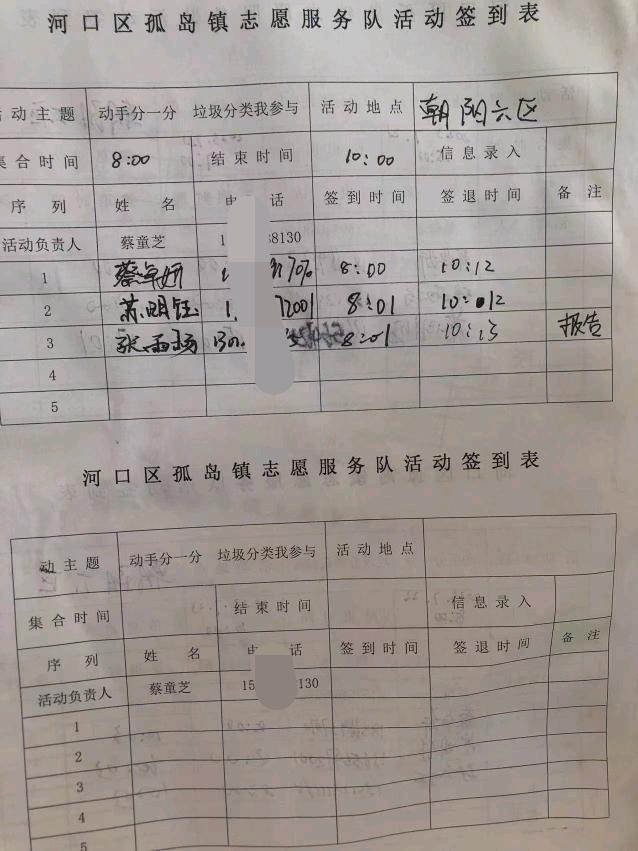 河口区孤岛镇志愿服务队活动签到表
动主题 动手分一分 垃圾分类我参与 活动地点 朝阳六区
集合时间 8:00 结束时间 10:00 信息录入
序列 姓名 电话 签到时间 签退时间 备注
活动负责人 蔡童芝 1 38130
1 8:00 10:12
2 1. 72001 8:01 10:012
3 张雨杨 130 8:01 10:13 报告
4
5
河口区孤岛镇志愿服务队活动签到表
动主题 动手分一分 垃圾分类我参与 活动地点
集合时间 结束时间 信息录入
序列 姓名 电话 签到时间 签退时间 备注
活动负责人 蔡童芝 15 130
1
2
3
4
5